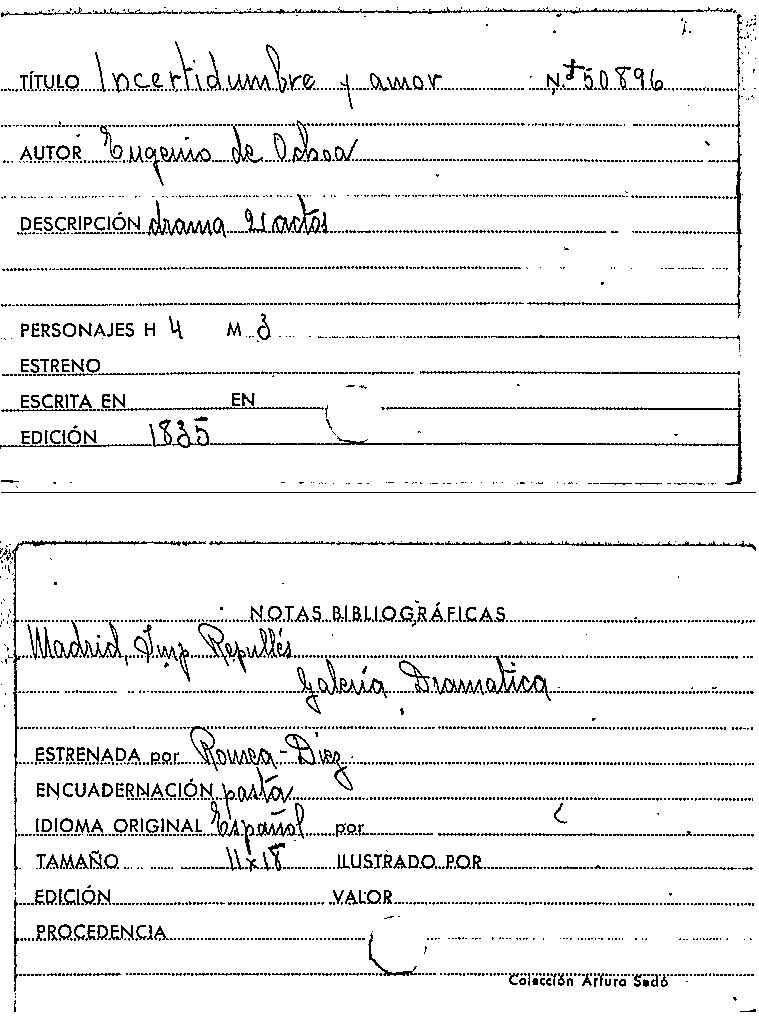 TÍTULO Incertidumbre y amor N.º 50896
AUTOR Eugenio de Ochoa
DESCRIPCIÓN drama 2 actos
PERSONAJES H 4 M 3
ESTRENO
ESCRITA EN EN
EDICIÓN 1835
NOTAS BIBLIOGRÁFICAS
Madrid, Imp Repullés
Galería Dramatica
ESTRENADA por Romea-Diez
ENCUADERNACIÓN pasta
IDIOMA ORIGINAL Español por
TAMAÑO 11x18 ILUSTRADO POR
EDICIÓN VALOR
PROCEDENCIA
Colección Arturo Sedó